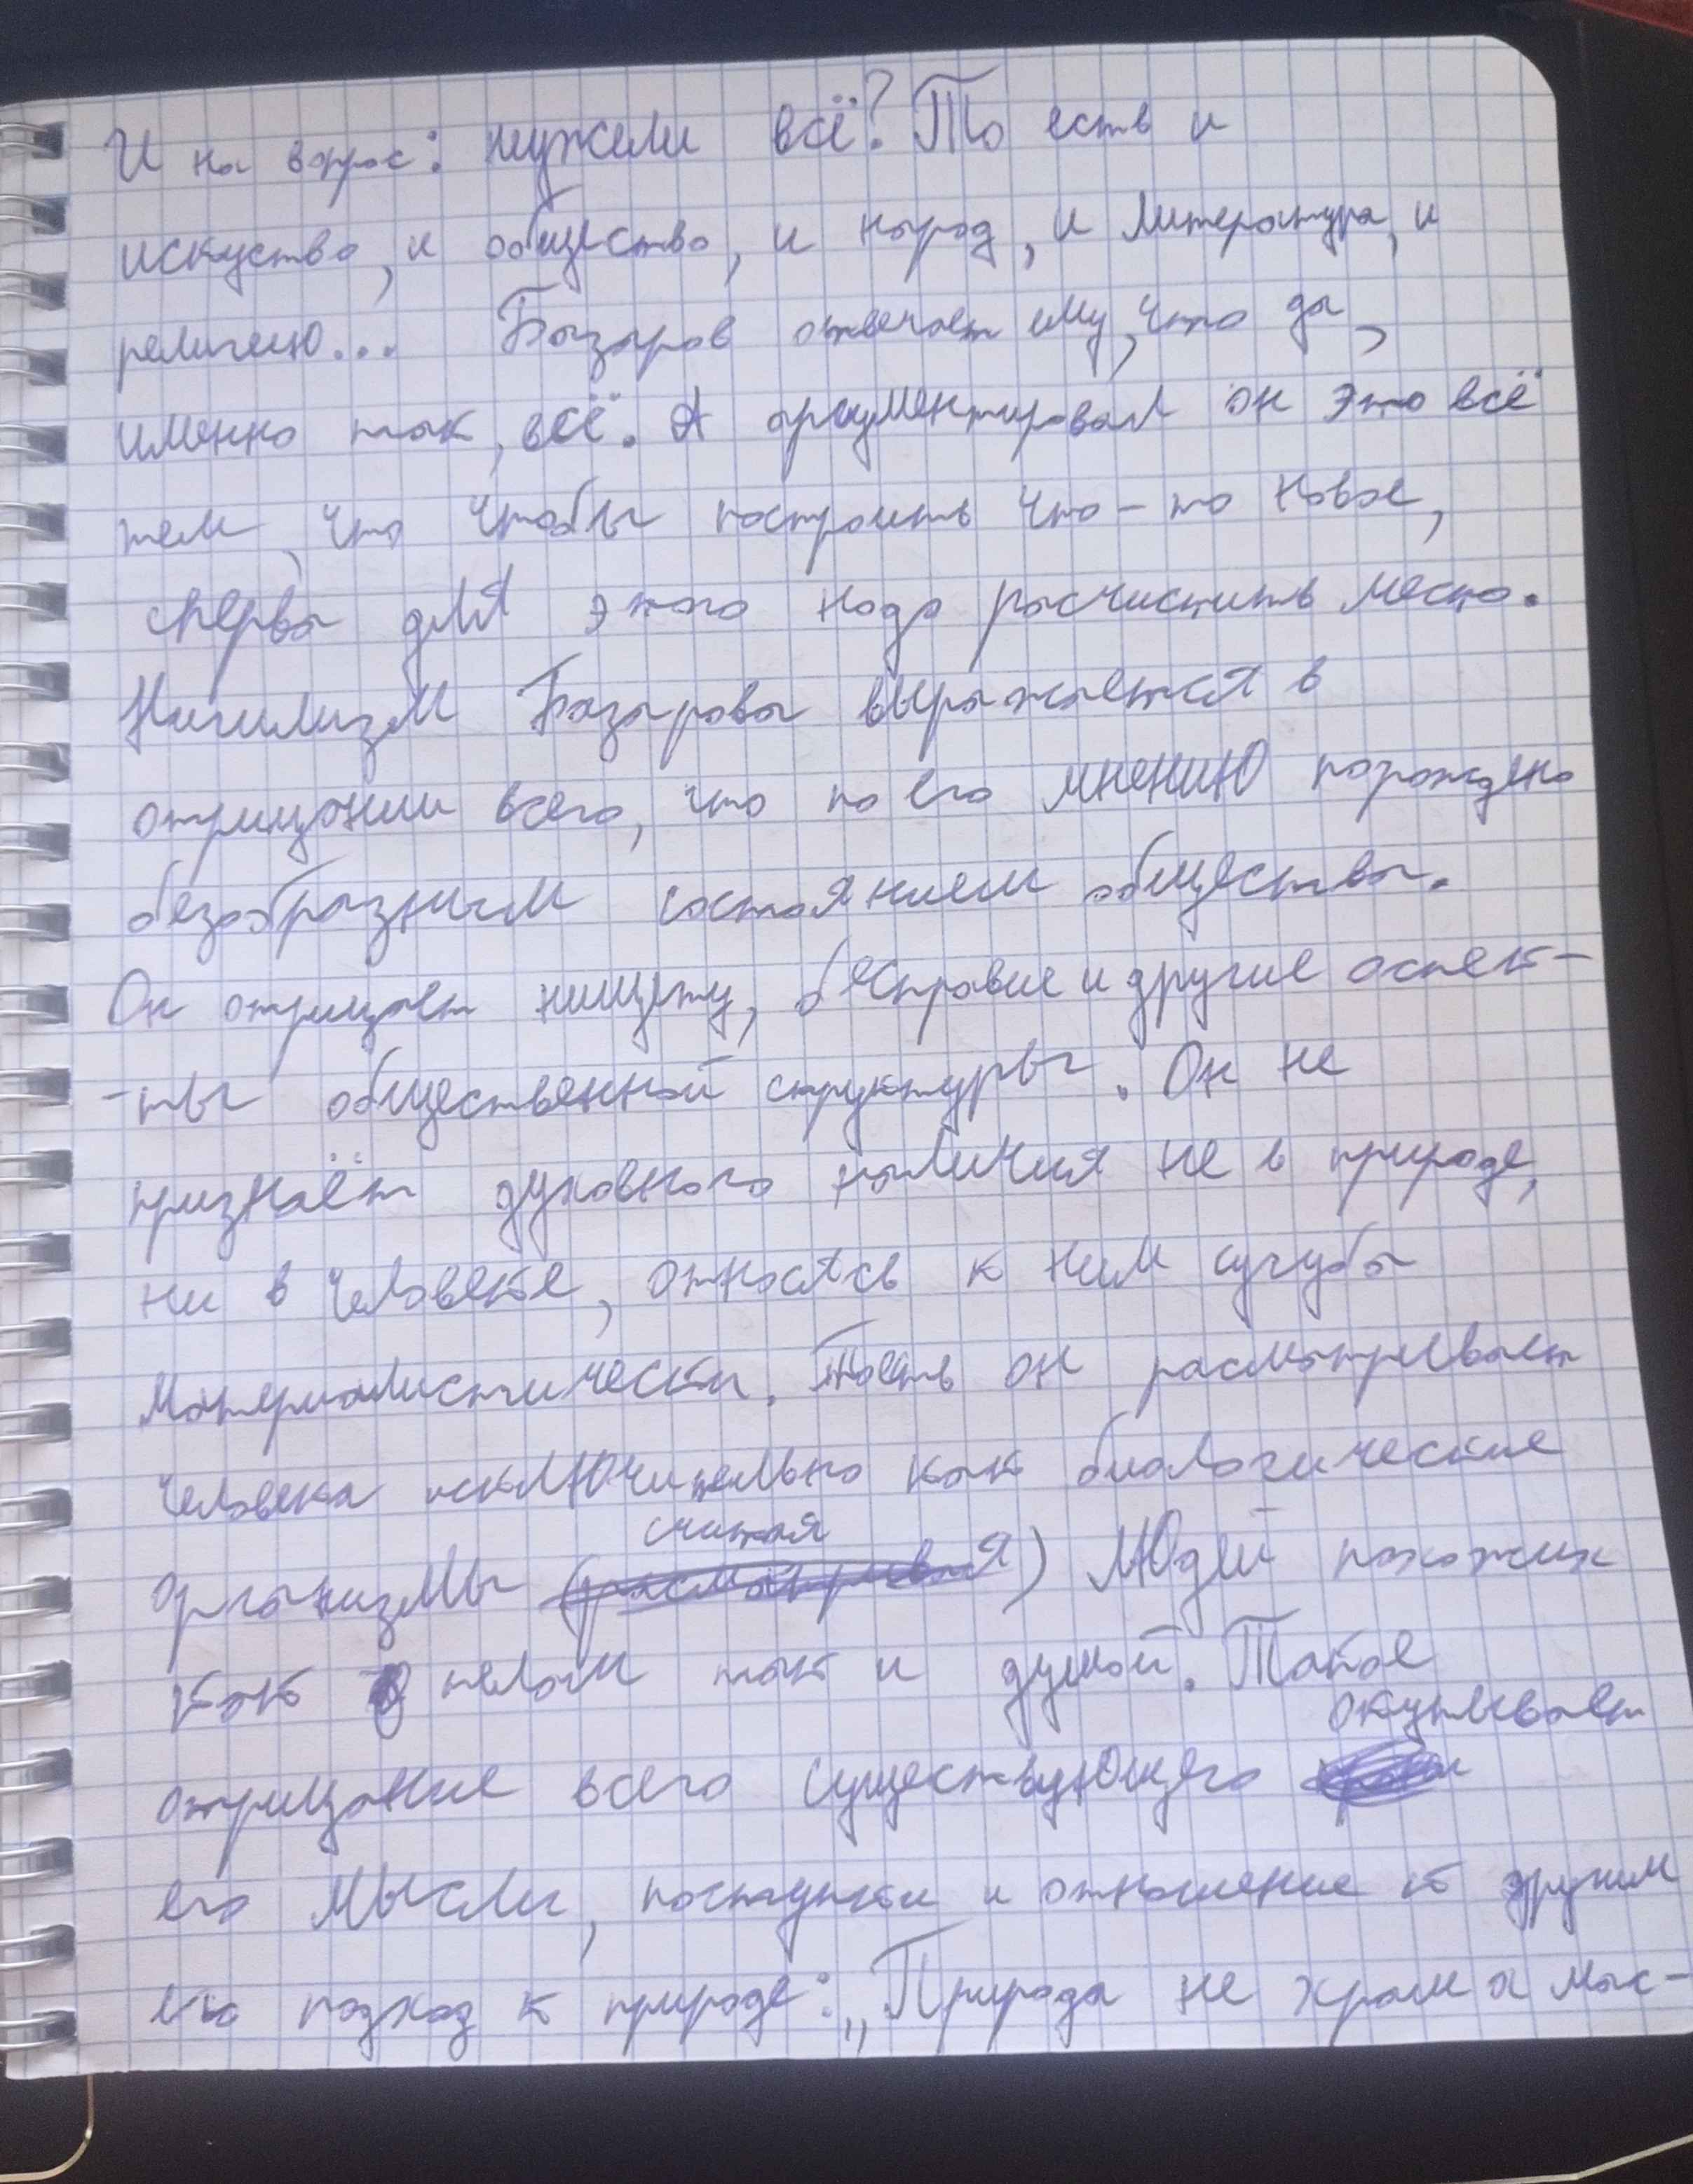 И на вопрос: нужели всё? То есть и
искуство, и общество, и народ, и литература, и
религию... Базаров отвечает ему, что да,
именно так, всё. А аргументировал он это всё
тем, что чтобы построить что-то новое,
сперва для этого надо расчистить место.
Нигилизм Базарова выражается в
отрицании всего, что по его мнению порождено
безобразным состоянием общества.
Он отрицает нищету, бесправие и другие аспек-
-ты общественной структуры. Он не
признаёт духовного наличия не в природе,
ни в человеке, относясь к ним сугубо
материалистически. Тоесть он расматривает
человека исключительно как биологические
организмы считая людей похожих
как телом так и душой. Такое
отрицание всего существующего окутывает
его мысли, поступки и отношение к другим
его подход к природе: „Природа не храм а мас-